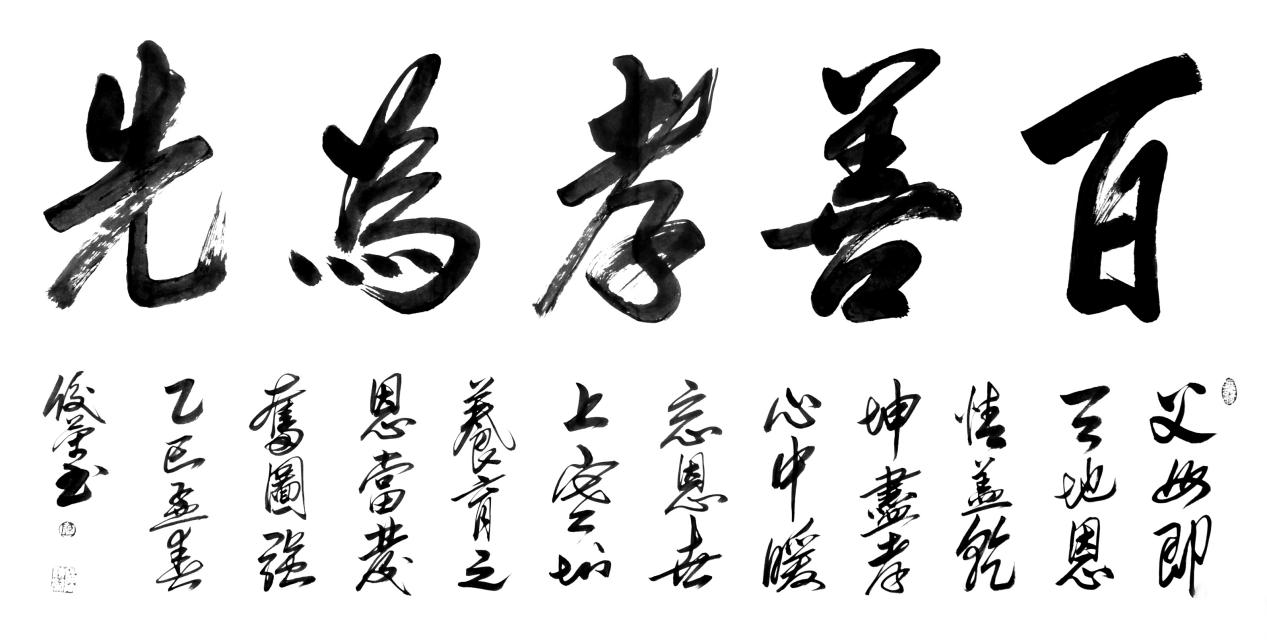 百善孝為先
父母即
天地恩
情蓋乾
坤盡孝
心中暖
忘恩世
上寒
養育之
恩當發
奮圖強
乙巳孟春
俊榮